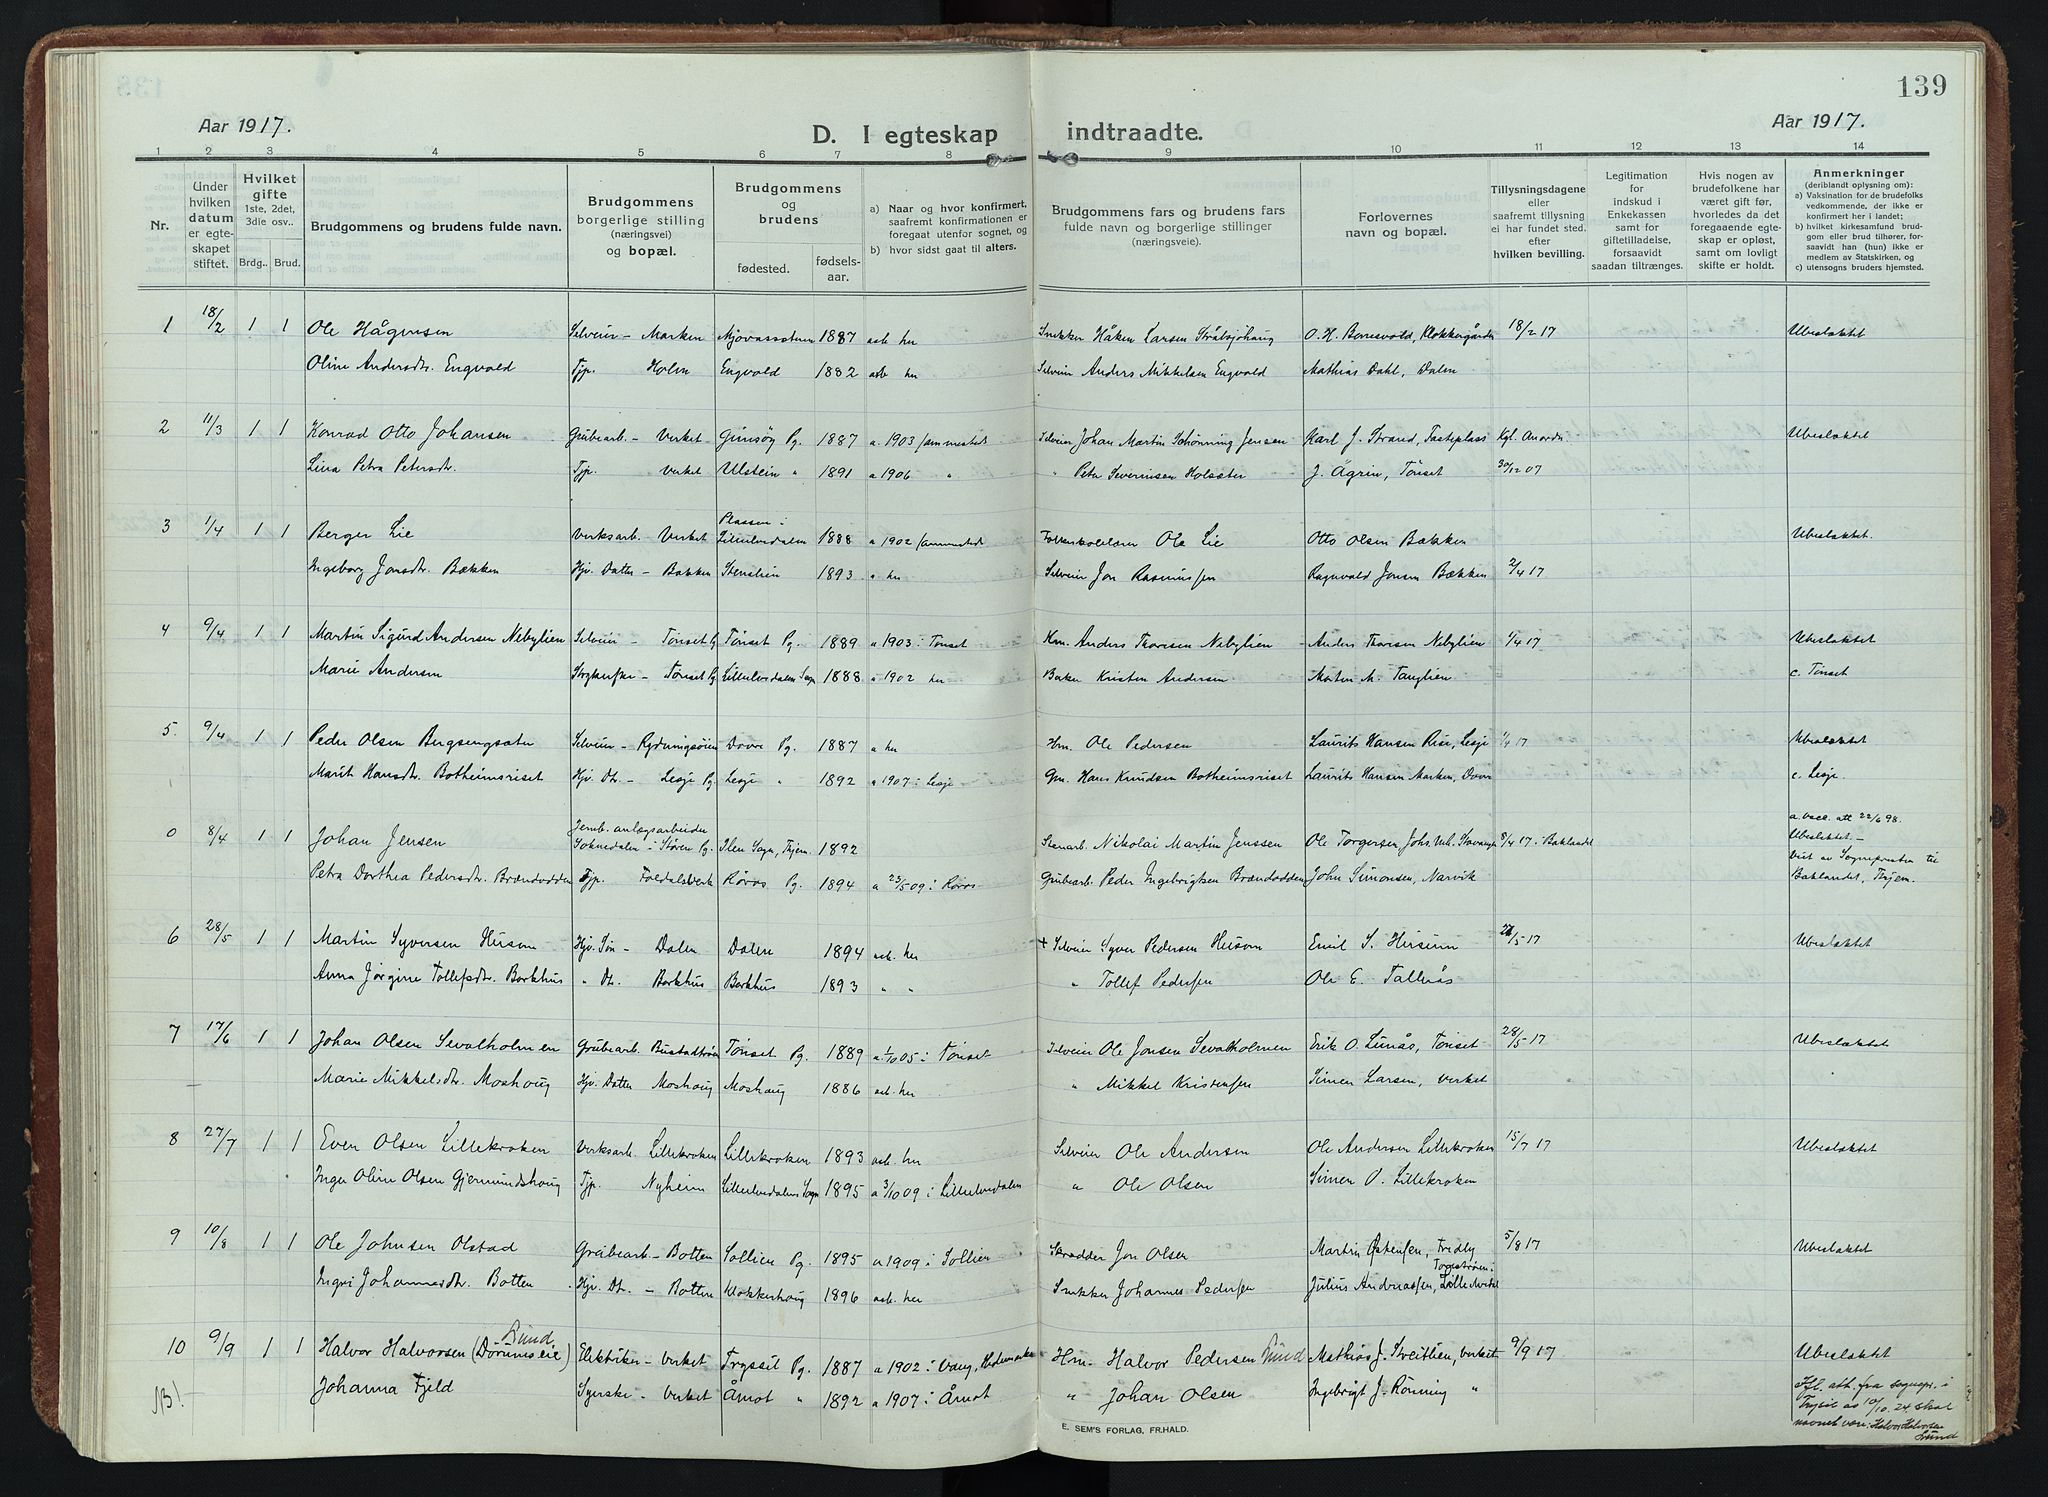 139
Aar 1917.
D. I egteskap indtraadte.
Aar 1917.
1 2 3 4 5 6 7 8 9 10 11 12 13 14
Nr.
Under hvilken datum er egte-skapet stiftet.
Hvilket gifte 1ste, 2det, 3die osv..
Brdg.. Brud.
Brudgommens og brudens fulde navn.
Brudgommens borgerlige stilling (næringsvei) og bopæl.
Brudgommens og brudens
fødested. fødsels-aar.
a) Naar og hvor konfirmert, saafremt konfirmationen er foregaat utenfor sognet, og
b) hvor sidst gaat til alters.
Brudgommens fars og brudens fars fulde navn og borgerlige stillinger (næringsveie).
Forlovernes navn og bopæl.
Tillysningsdagene eller saafremt tillysning ei har fundet sted, efter hvilken bevilling.
Legitimation for indskud i Enkekassen samt for giftetilladelse, forsaavidt saadan tiltrænges.
Hvis nogen av brudefolkene har været gift før, hvorledes da det foregaaende egte-skap er opløst, samt om lovligt skifte er holdt.
Anmerkninger (deriblandt oplysning om):
a) Vaksination for de brudefolks vedkommende, der ikke er konfirmert her i landet;
b) hvilket kirkesamfund brud-gom eller brud tilhører, for-saavidt han (hun) ikke er medlem av Statskirken, og
c) utensogns bruders hjemsted.
1 18/2 1 1 Ole Hågensen Selveier - Marken 1887 her Snekker Håken Larsen 18/2 17 Ubeslæktet
Oline Andersdr. Engvold Tjp. Holm Engvold 1882 her Selveier Anders Mikkelsen Engvold Mathias Dahl, Dalen
2 11/3 1 1 Konrad Otto Johansen Grubearb. - Verket Gimsøy Pg. 1887 a 1903 Selveier Johan Martin Schønning Jensen Karl J. Strand, Kgl. Anordn. Ubeslæktet
Lina Petra Petersdr. Tjp. Verket Ulstein " 1891 a 1906 " " Peter Severinsen Holsæter J. Ågrin, Tønset 30/12 07
3 1/4 1 1 Berger Lie Verksarb. Verket Plassen i Lilleelvedalen 1888 a 1902 Ole Lie Otto Olsen Bækken Ubeslæktet.
Ingeborg Jonsdr. Bækken Hjv. Datter - Bækken 1893 a her Selveier Jon Rasmussen Ragnvald Jonsen Bækken 2/4 17
4 9/4 1 1 Martin Sigurd Andersen Nebylien Selveier - Tønset Pg Tønset Pg. 1889 a 1903 i Tønset Hm. Anders Thoresen Nebylien Anders Thoresen Nebylien 1/4 17 Ubeslæktet
Marie Andersen - Tønset Pg Lilleelvedalen Sogn 1888 a 1902 her Baker Kristen Andersen Morten M. Tanglien c. Tønset
5. 9/4 1 1 Peder Olsen Bergsengsæter Selveier - Dovre Pg. 1887 a her Hm. Ole Pedersen Laurits Hansen Rise, Lesje 1/4 17 Ubeslæktet
Marit Hansdr. Botheimsriset Hjv. Dtr. - Lesje Pg Lesje " 1892 a 1907 i Lesje Gm. Hans Knudsen Botheimsriset Laurits Hansen Marken, Dovre c. Lesje.
0 8/4 1 1 Johan Jensen Jernb. anlægsarbeider Soknedalen i Støren Pg. Ilen Sogn, Thjem. 1892 Stenarb. Nikolai Martin Jenssen Ole Torgersen, 8/4 17 i Baklandet a. vacc. att 22/6 98. Ubeslæktet. -
Petra Dorthea Pedersdr. Brændodden Tjp. Foldalsverk Røros Pg. 1894 a 23/5 09 i Røros Grubearb. Peder Ingebrigtsen Brændodden John Simonsen, Narvik Viet av Sognepresten til Baklandet, Thjem.
6 28/5 1 1 Martin Syversen Husom Hjv. Søn - Dalen Dalen 1894 her + Selveier Syver Pedersen Husom Emil S. Husum /5 17 Ubeslæktet
Anna Jørgine Tollefsdr. Borkhus " Dtr. Borkhus Borkhus 1893 " " " Tollef Pedersen Ole E. Tallerås
7 17/6 1 1 Johan Olsen Sevalholmen Grubearb. Tønset Pg. 1889 a 1/10 05 i Tønset Selveier Ole Jonsen Sevalholmen Erik O. Lunås, Tønset 28/5 17 Ubeslæktet
Marie Mikkelsdr. Moshoug Hjv. Datter Moshaug Moshaug 1886 her " Mikkel Kristensen Simen Larsen, Verket
8 27/7 1 1 Even Olsen Lillekroken Verksarb. Lillekroken Lillekroken 1893 her Selveier Ole Andersen Ole Andersen Lillekroken 15/7 17 Ubeslæktet
Inger Oline Olsen Gjermundshoug Tjp. Nyheim Lilleelvedalens Sogn 1895 a 3/10 09 i Lilleelvedalen " Ole Olsen Simen O. Lillekroken
9 10/8 1 1 Ole Johnsen Olstad Grubearb. - Botten Sollien Pg. 1895 a 1909 i Sollien Skrædder Jon Olsen Martin Østensen, Fredly 5/8 17 Ubeslæktet
Ingri Johannesdr. Botten Hjv. Dtr. - Botten Klokkerhoug 1896 her Snekker Johannes Pedersen Julius Andreassen,
10 9/9 1 1 Halvor Halvorsen (Dörumseie) Elektriker - Verket Tryssil Pg. 1887 a 1902 i Vang, Hedemarken Hm. Halvor Pedersen Mathias J. Streitlien, Verket 9/9 17 Ubeslæktet
NB! Johanna Fjeld Syerske - Verket Åmot " 1892 a 1907 i Åmot " Johan Olsen Ingebrigt J. Rønning "
Ifl. att. fra sognepr. i Trysil av 10/10. 24 skal navnet være: Halvor Halvorsen
E. SEM'S FORLAG, FR.HALD.